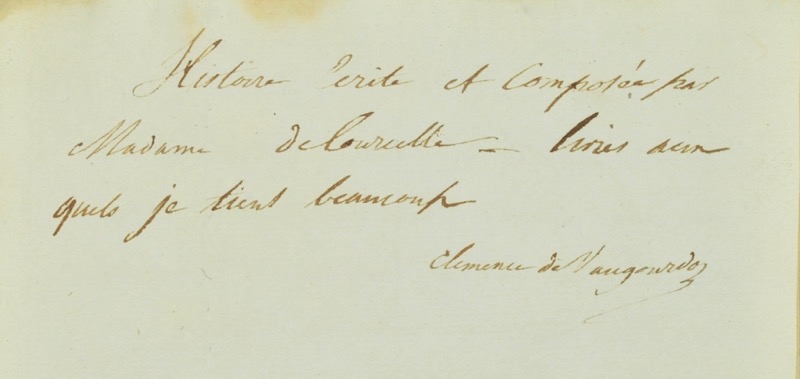 Histoire Ecrite et Composée par
Madame de Courcelle - livres aux
quels je tiens beaucoup
Clemence de Vaugourdo